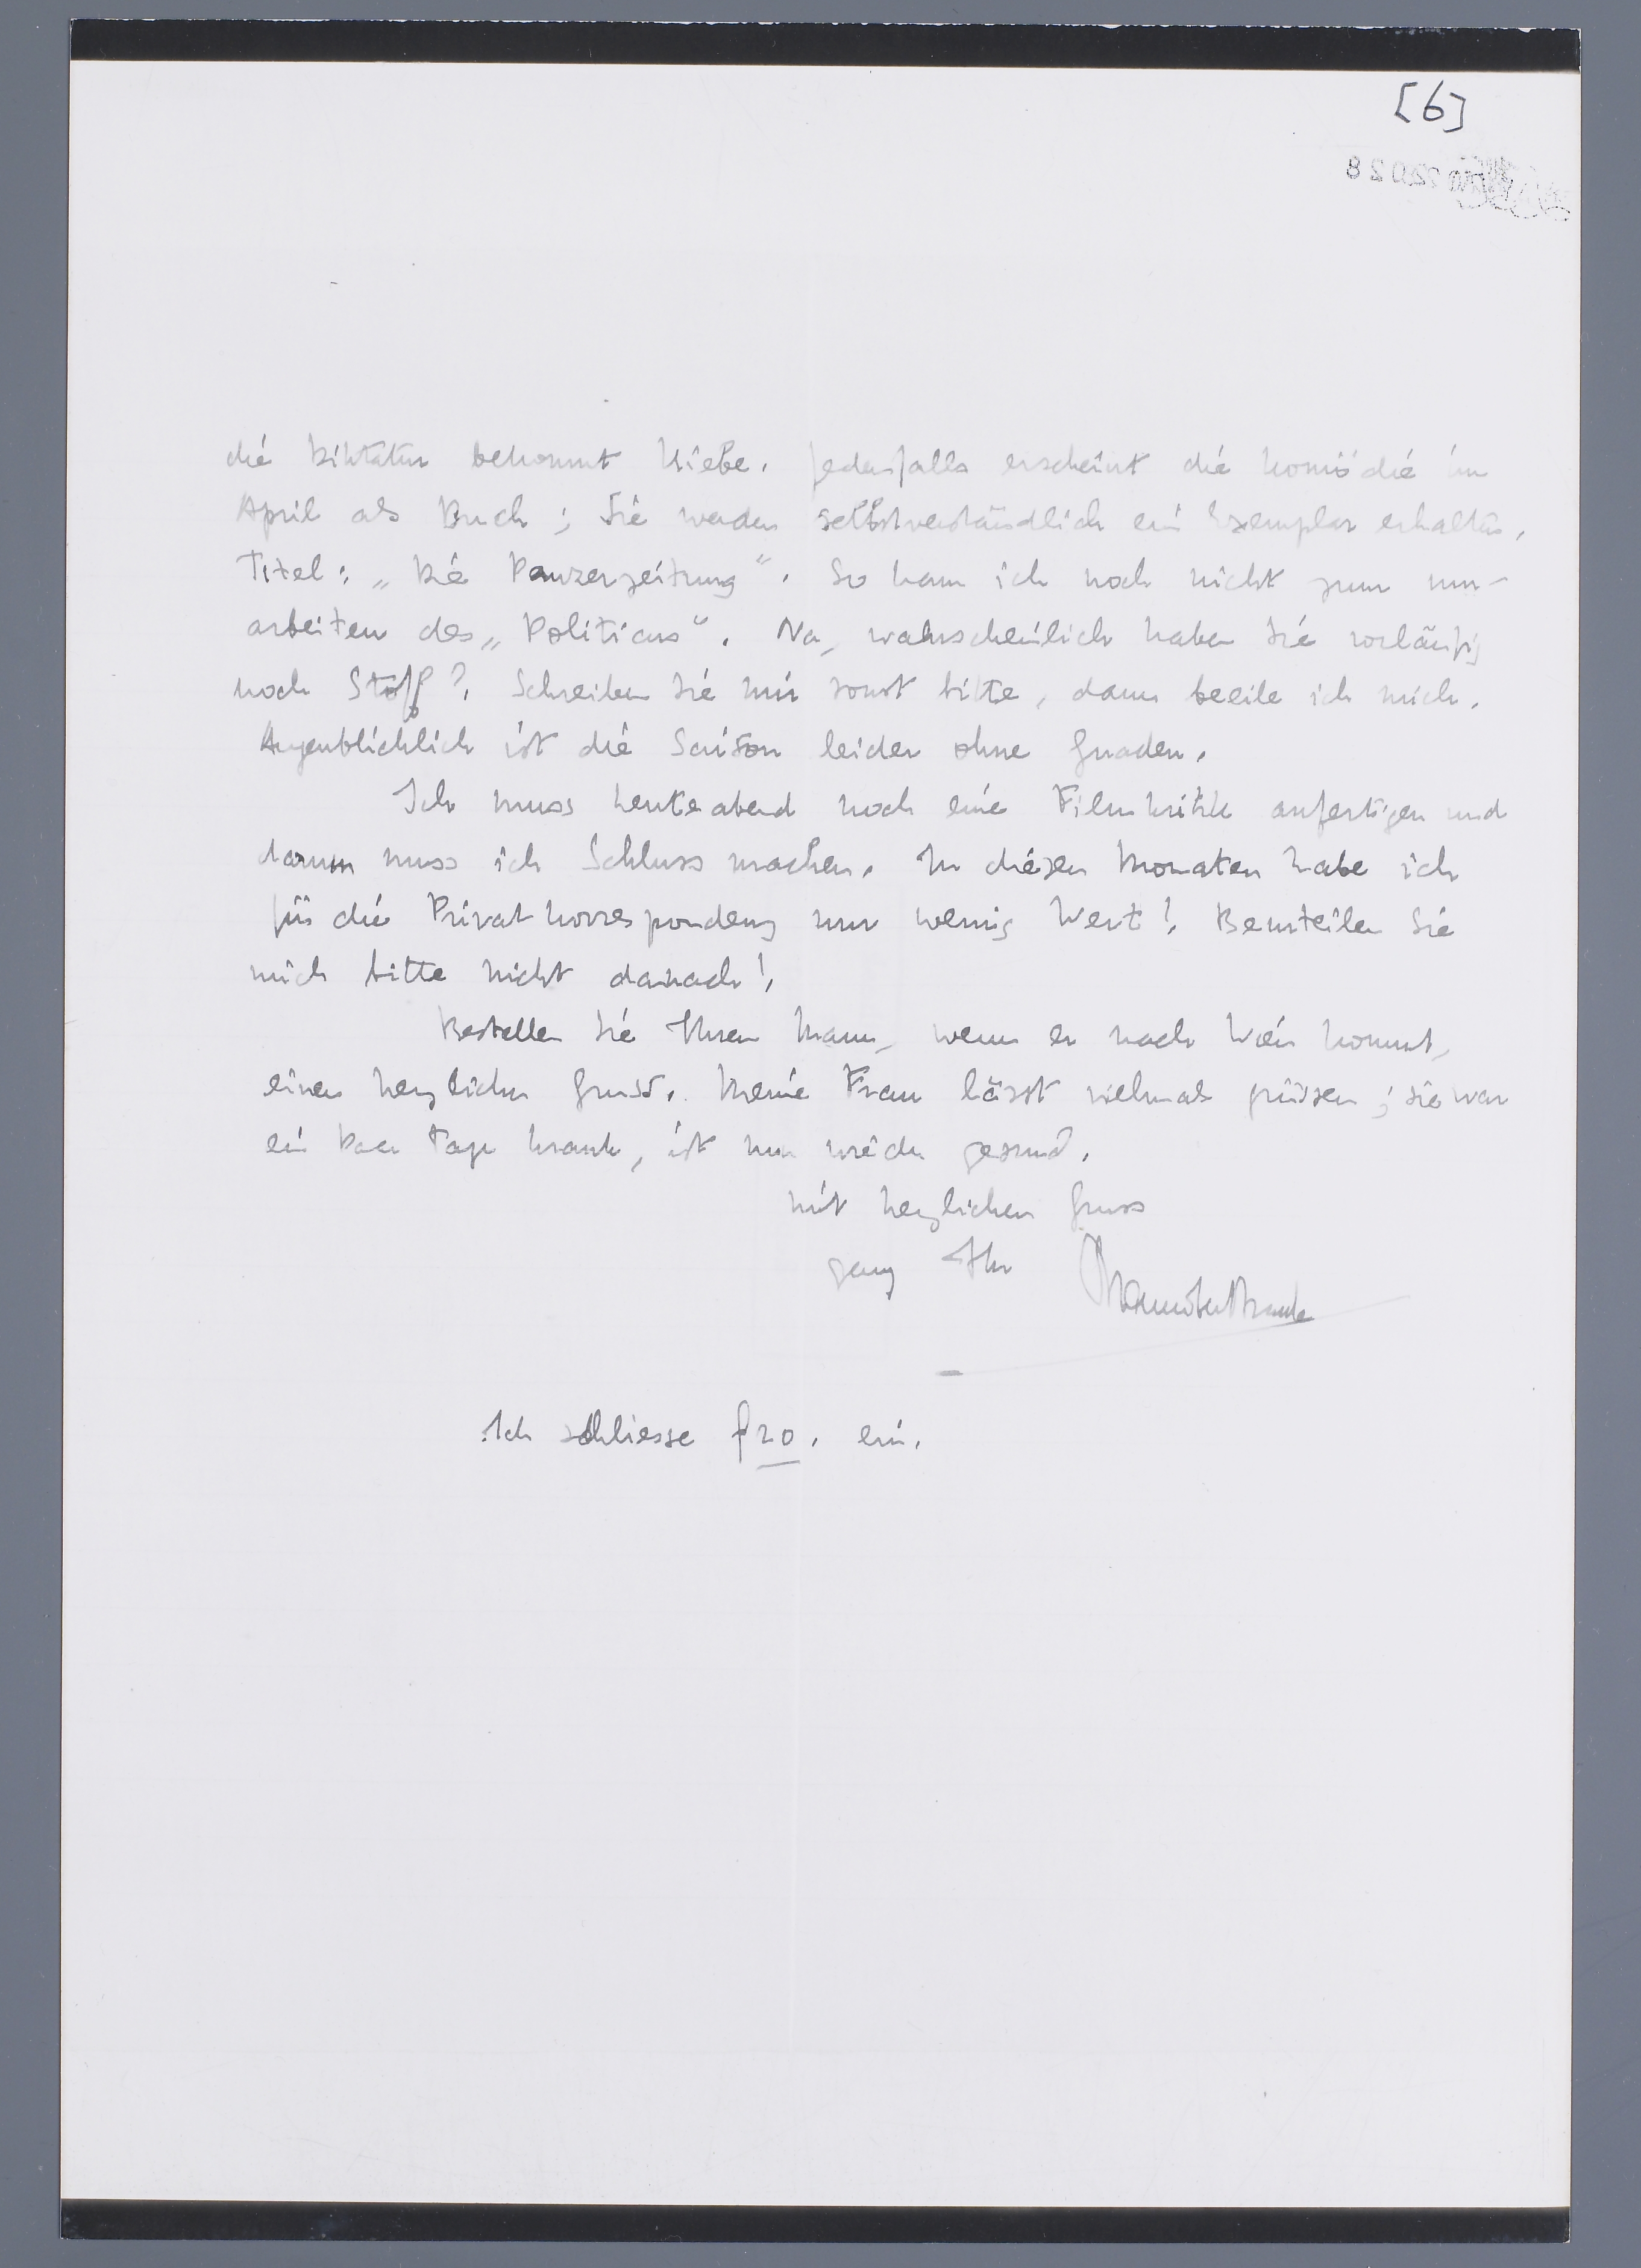 [6]
22028
die Diktatur bekommt Hiebe. Jedenfalls erscheint die Komödie im
April als Buch; Sie werden selbstverständlich ein Exemplar erhalten.
Titel: „Die Panzerzeitung“. So kam ich noch nicht zum um-
arbeiten des „Politicus“. Na, wahrscheinlich haben Sie vorläufig
noch Stoff?. Schreiben Sie mir sonst bitte, dann beeile ich mich.
Augenblicklich ist die Saison leider ohne Gnaden.
Ich muss heuteabend noch eine Filmkritik anfertigen und
darum muss ich Schluss machen. In diesen Monaten habe ich
für die Privatkorrespondenz nur wenig Wert!. Beurteilen Sie
mich bitte nicht danach!.
Bestellen Sie Ihrem Mann, wenn er nach Wien kommt,
einen herzlichen Gruss. Meine Frau lässt vielmals grüssen; sie war
ein Paar Tage krank, ist nun wieder gesund.
Mit herzlichem Gruss
ganz Ihr
Ich schliesse f 20. ein.